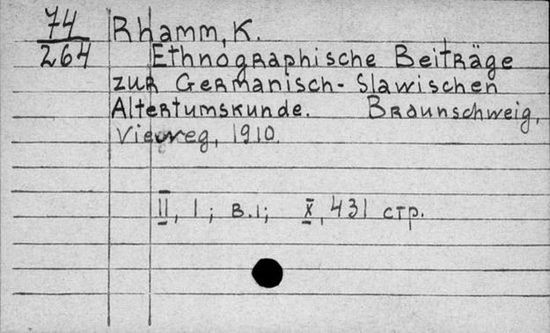 74
264
Rhamm, K.
Ethnographische Beiträge
zur Germanisch-Slawischen
Altertumskunde. Braunschweig,
Vieweg, 1910.
II, 1; B.1; X, 431 стр.